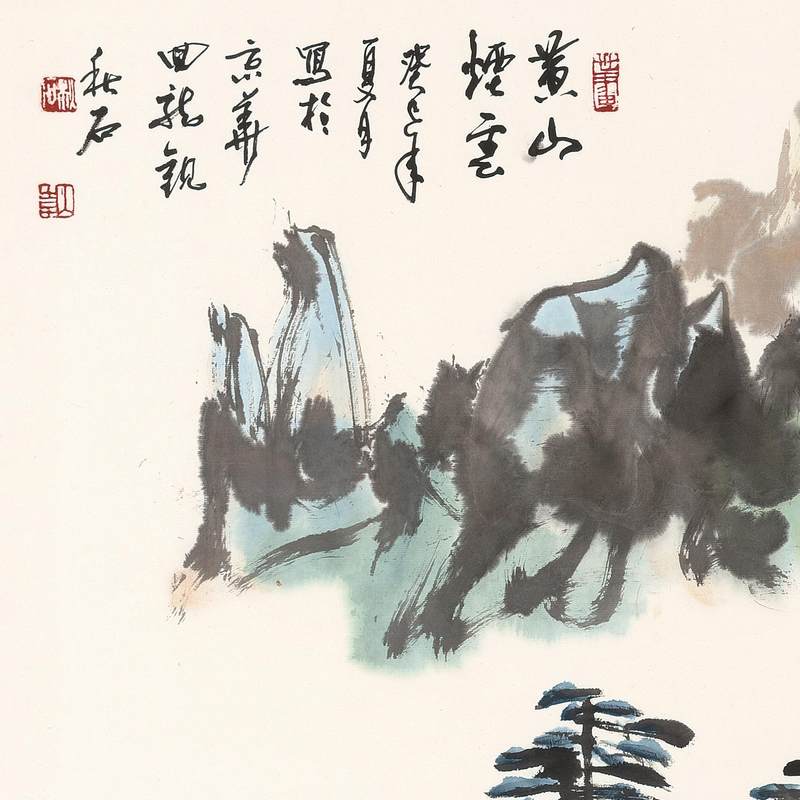 黄山
煙雲
癸巳年
夏月
寫於
京華
回龍觀
秋石